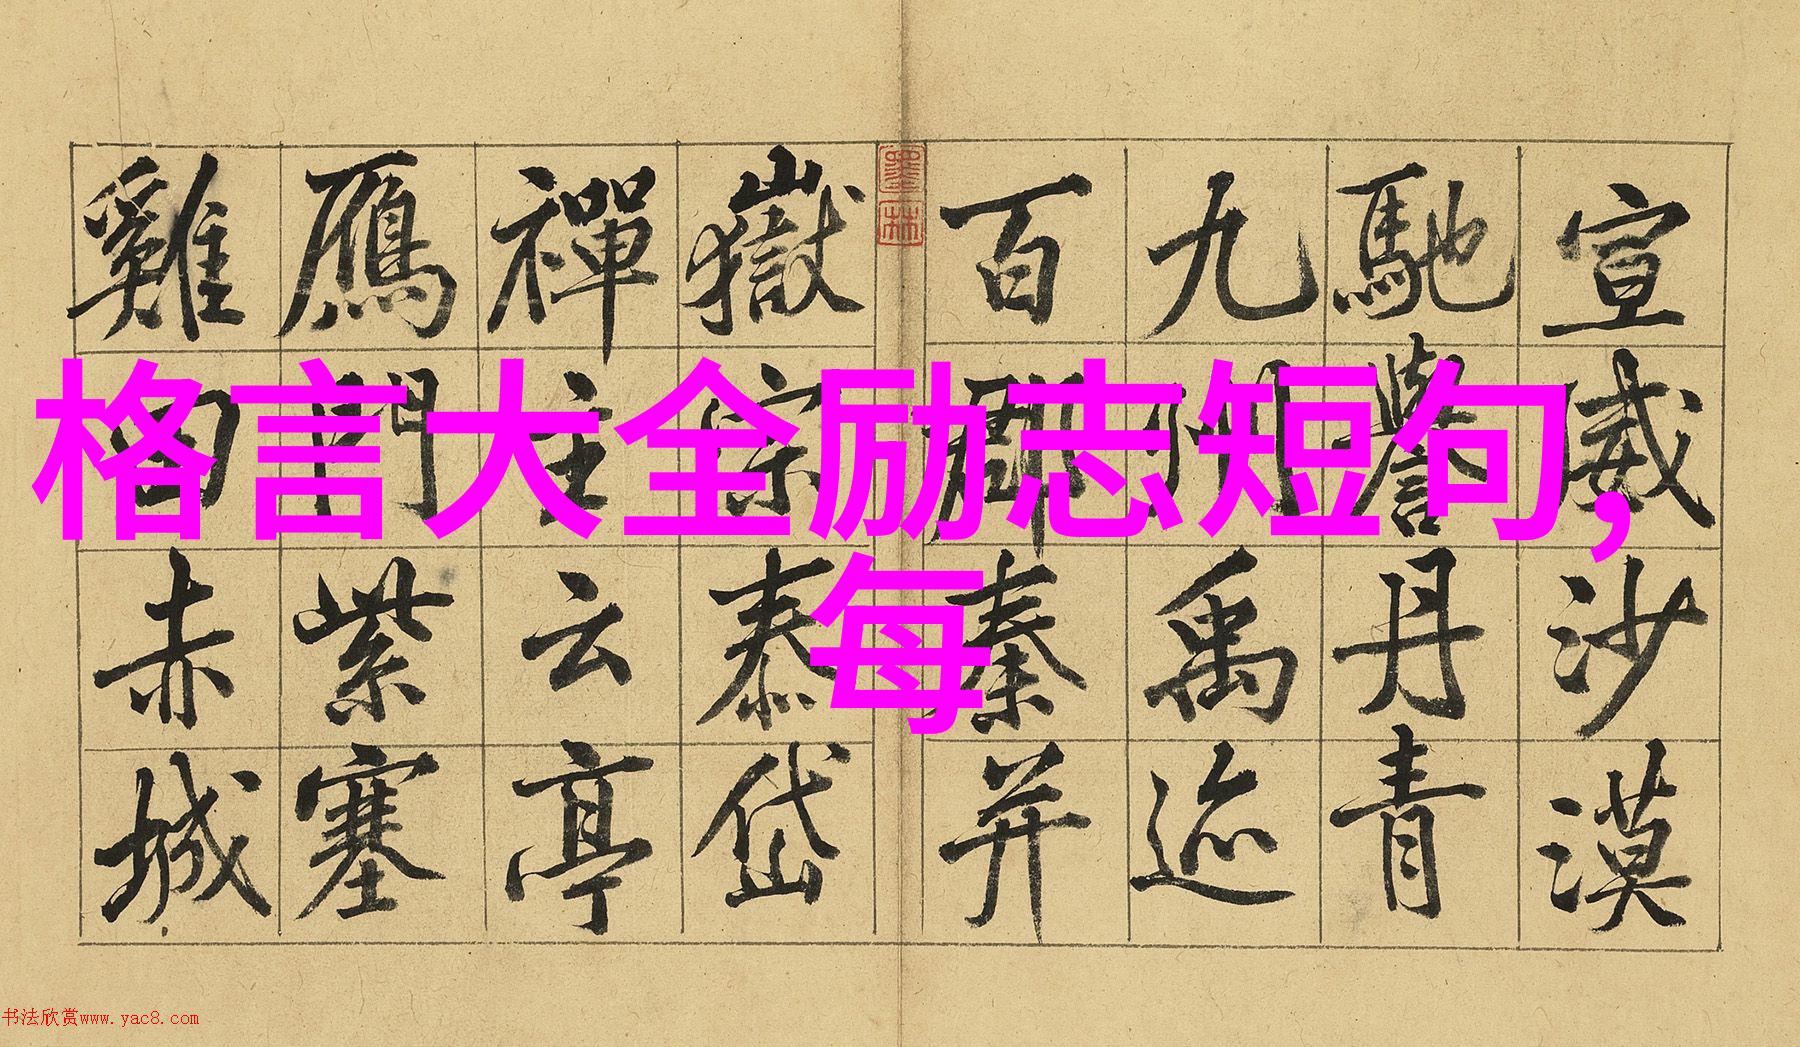 格言大全励志短句,
每
宣威沙漠
馳譽丹青
九州禹迹
百郡秦并
墨林
嶽宗泰岱
禪主云亭
鴈門紫塞
雞田赤城
书法欣赏www.yac8.com